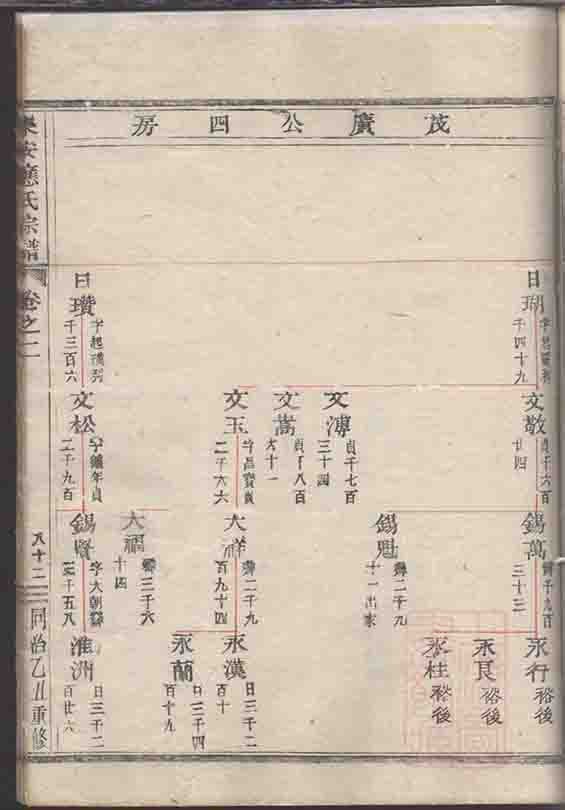 茂廣公四房
日瑚
千四十九
文敬
貞千六百
廿四
錫萬
三十三
永行
裕後
永艮
裕後
永柱
裕後
文溥
貞千七百
三十四
文蒿
貞千八百
六十一
錫魁
二千九
十一出家
文玉
二千六六
大祥
二千九
百九十四
永漢
日三千二
百十
永蘭
日三千四
百十九
大福
三千六
十四
日瓚
千三百六
文松
二千九百
錫賢
字大朝
千五八
淮洲
日三千二
百廿六
樂安應氏宗譜
卷之二
八十二
同治乙丑重修